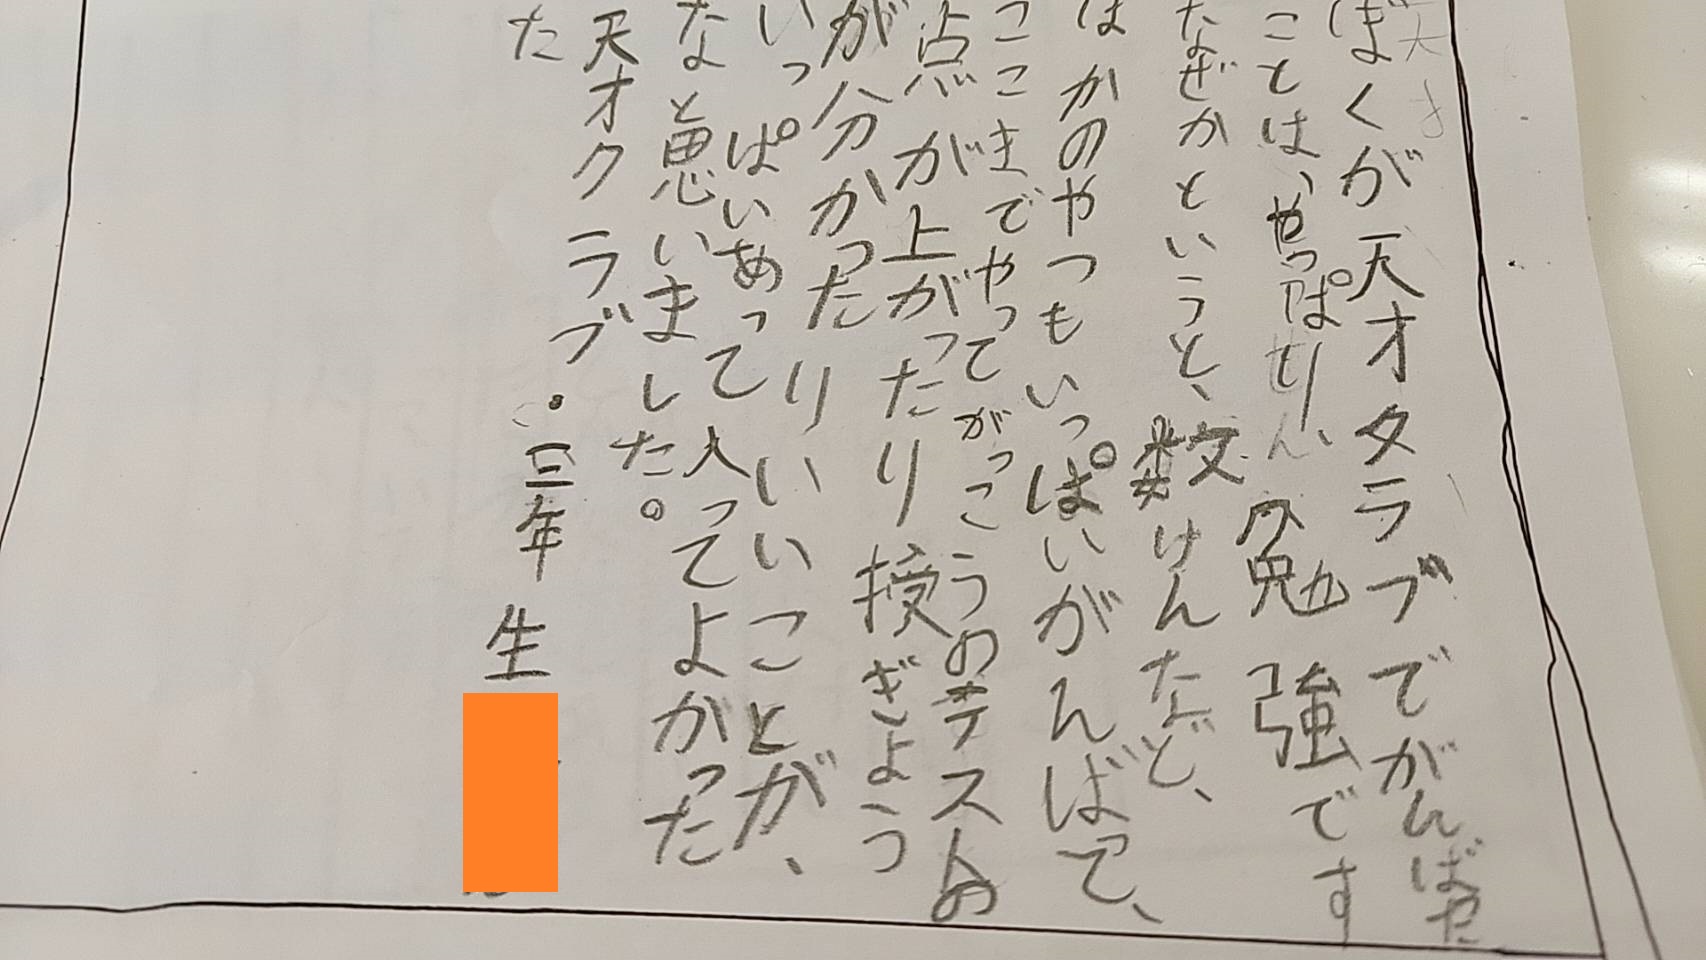 ぼくが天オクラブでがんばった
ことは、やっぱり、勉強です
なぜかというと、数けんなど、
ほかのやつもいっぱいがんばって、
ここまでやってがっこうのテストの
点が上がったり授ぎよう
が分かったりいいことが、
いっぱいあって入ってよかった
なと思いました。
天オクラブ・三年生
た